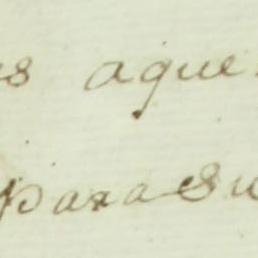 es aque
para su